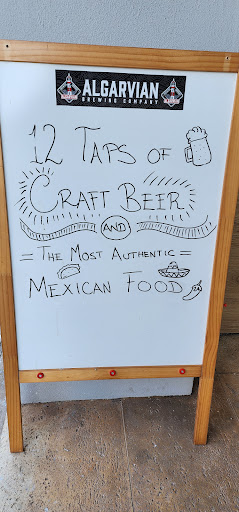 ALGARVIAN
BREWING COMPANY
12 TAPS OF
CRAFT BEER
AND
= THE MOST AUTHENTIC =
MEXICAN FOOD